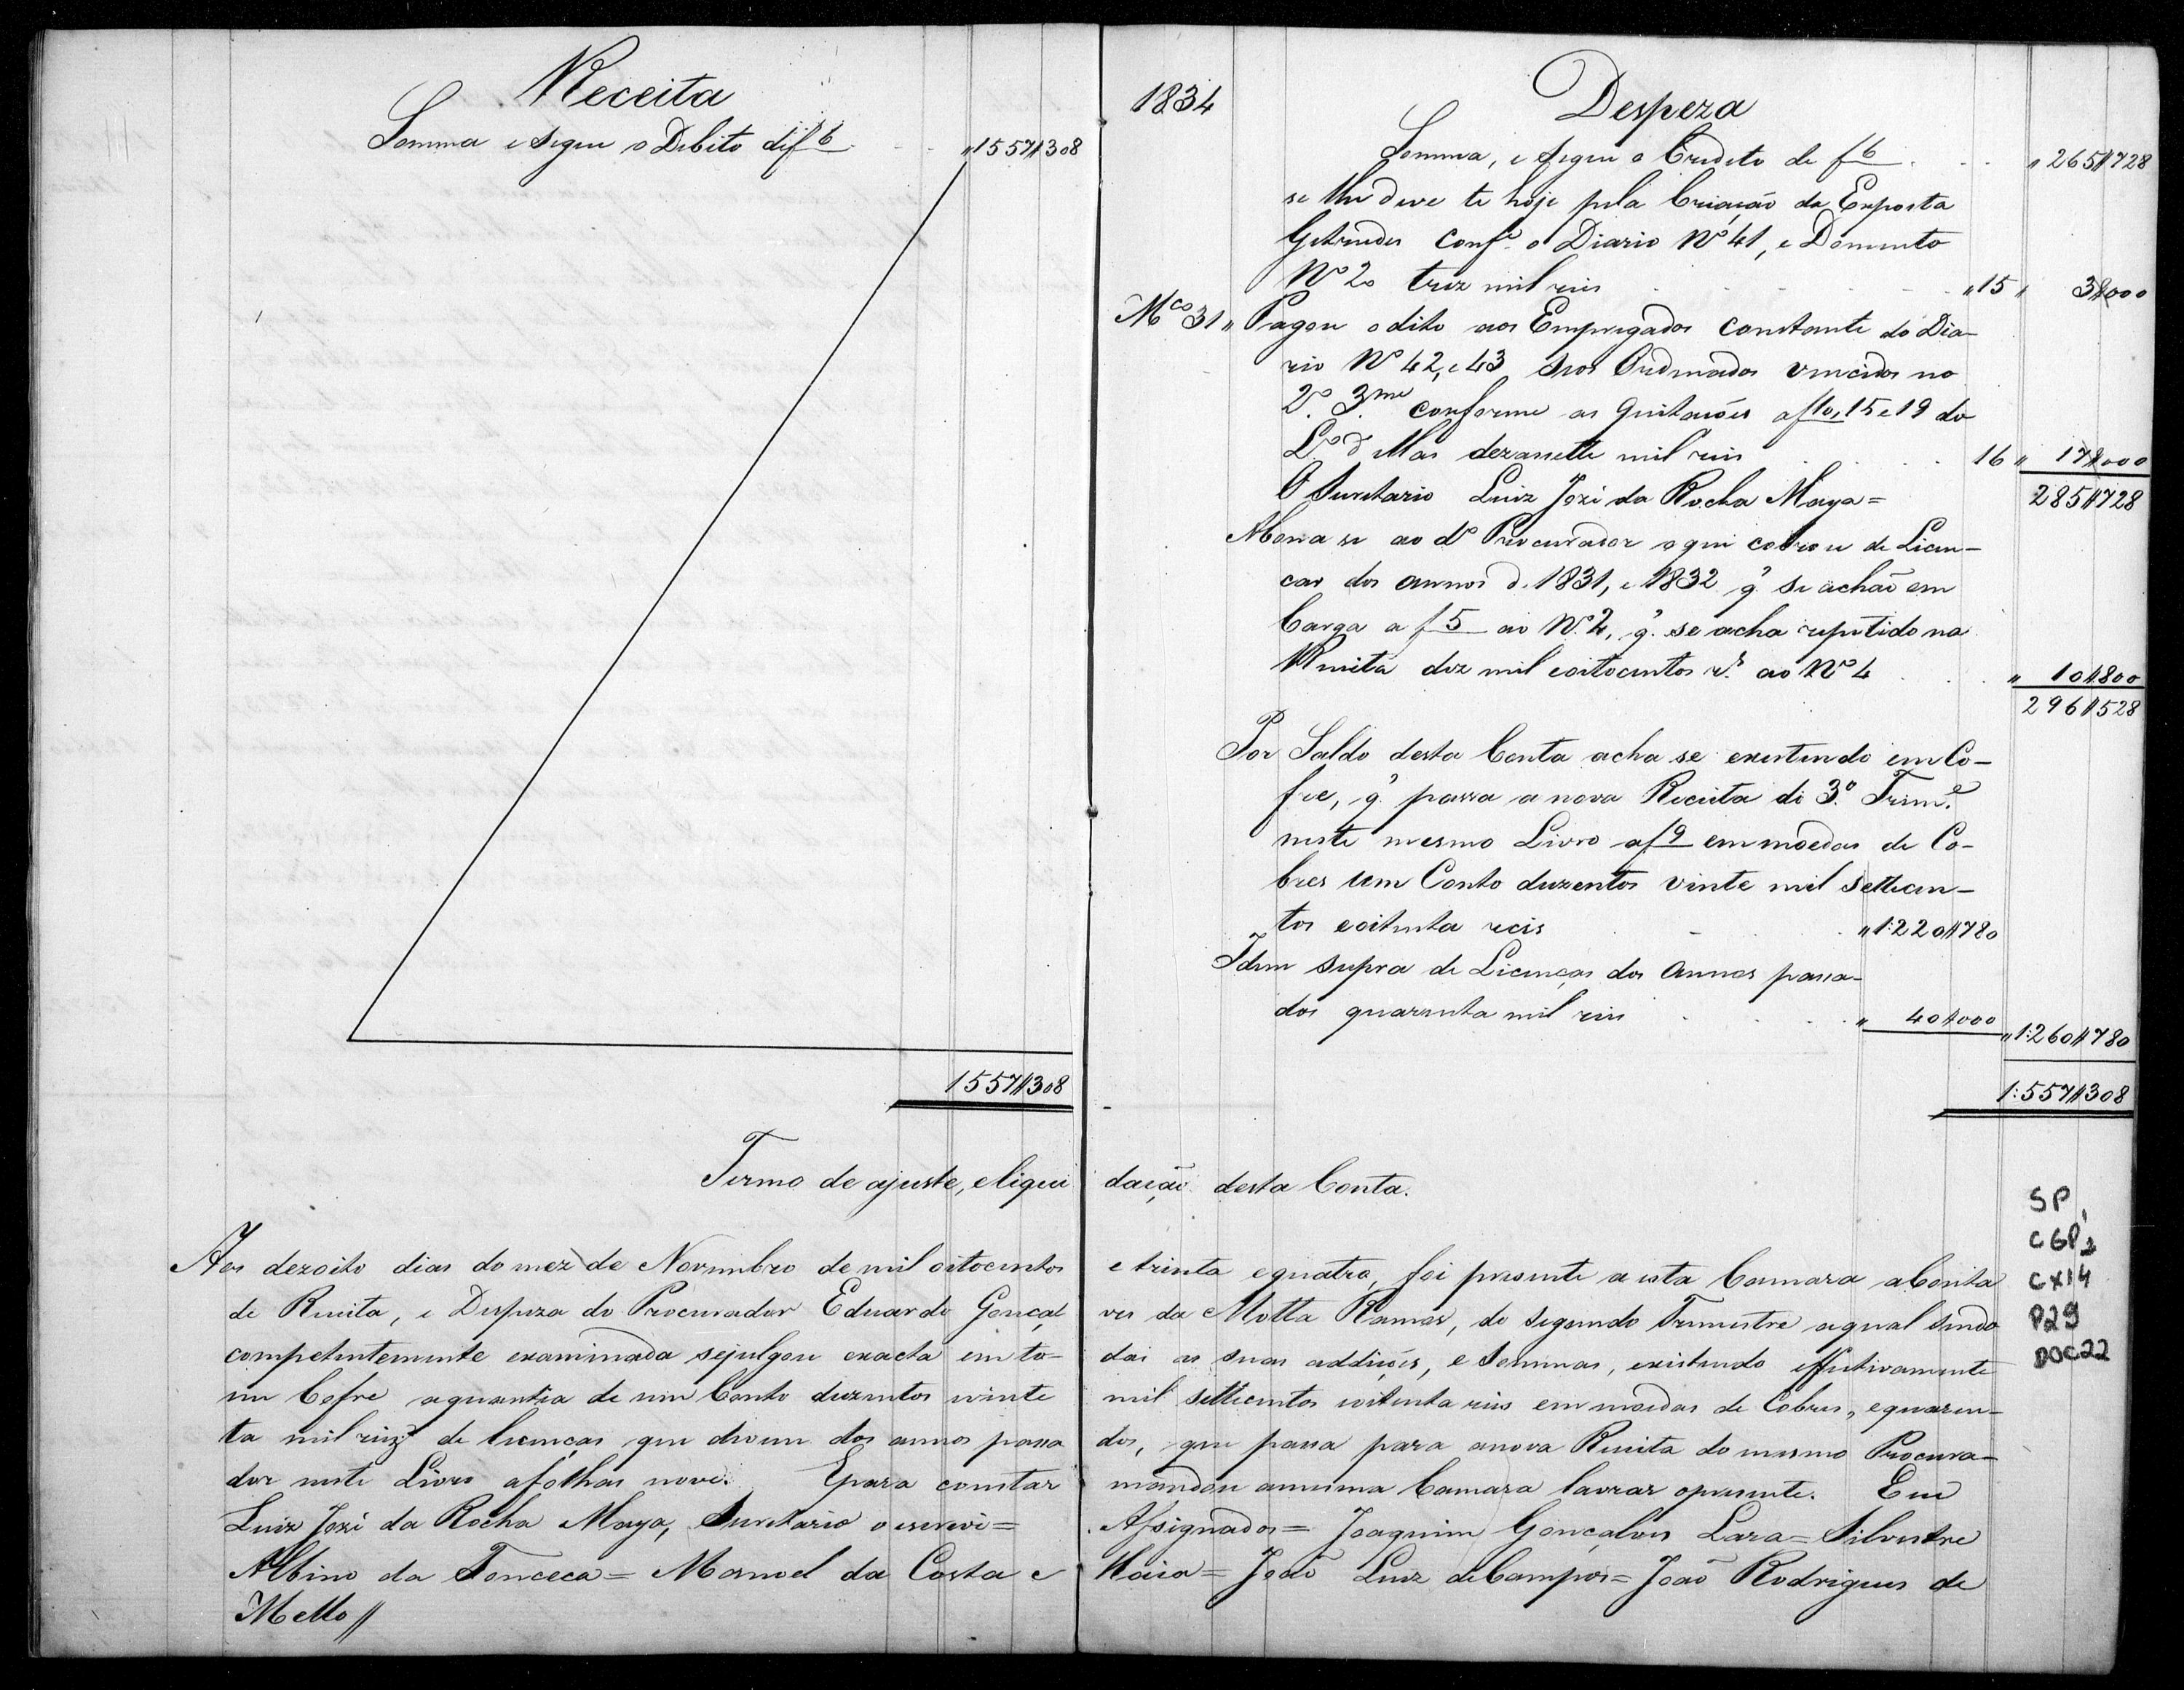 Receita
Somma e segue o Debito de f 6 "1557$308
1557$308
1834
Despeza
Somma, e segue o Credito de f 6 " 265$728
se lhe deve te hoje pela Criação da Exposta
Getrudes Confe o Diario Nº 41, e Domento
Nº 20 trez mil reis "15" 3$000
Mco 31 " Pagou o dito aos Empregados constante do Dia-
rio Nº 42, e 43 seos Ordenados vencidos no
2º 3.me conforme as quitações a f 10, 15 e 19 do
L.º d' Mas dezassette mil reis 16 " 17$000
O Secretario Luiz Jozé da Rocha Maya = 285$728
Abona se ao dº Procurador o que cobrou de Licen-
cas dos annos d. 1831, e 1832 q' se achão em
Carga a f 5 ao Nº 2, q' se acha repetido na
Receita dez mil e oitocentos rs ao Nº 4 " 10$800
296$528
Por Saldo desta Conta acha se existindo em Co-
fre, q' passa a nova Receita do 3º Trim.e
neste mesmo Livro a f 9 em moedas de Co-
bres um Conto duzentos vinte mil settecen-
tos e oitenta reis "1:220$780
Idem supra de Licenças dos Annos passa-
dos quarenta mil reis " 40$000 "1:260$780
1:557$308
Termo de ajuste, e liqui dação desta Conta.
Aos dezoito dias do mez de Novembro de mil oitocentos e trinta e quatro, foi presente a esta Camara a Conta
de Receita, e Despeza do Procurador Eduardo Gonçal ves da Motta Ramos, do segundo Trimestre a qual sendo
competentemente examinada se julgou exacta em to- das as suas addições, e sommas, existindo effectivamente
no Cofre a quantia de um Conto duzentos vinte mil settecentos e oitenta reis em moedas de Cobres, e quaren-
ta mil reis de licenças que divem dos annos passa dos, que passa para a nova Receita do mesmo Procura-
dor neste Livro a folhas nove. E para constar mandou a mesma Camara lavrar o presente. Eu
Luiz Jozé da Rocha Maya, Secretario o escrevi = Assignados = Joaquim Gonçalves Lara = Silvestre
Albino da Fonceca = Manoel da Costa e Maia = João Luiz de Campos = João Rodrigues de
Mello //
SP1
CGP2
CX14
P29
DOC22